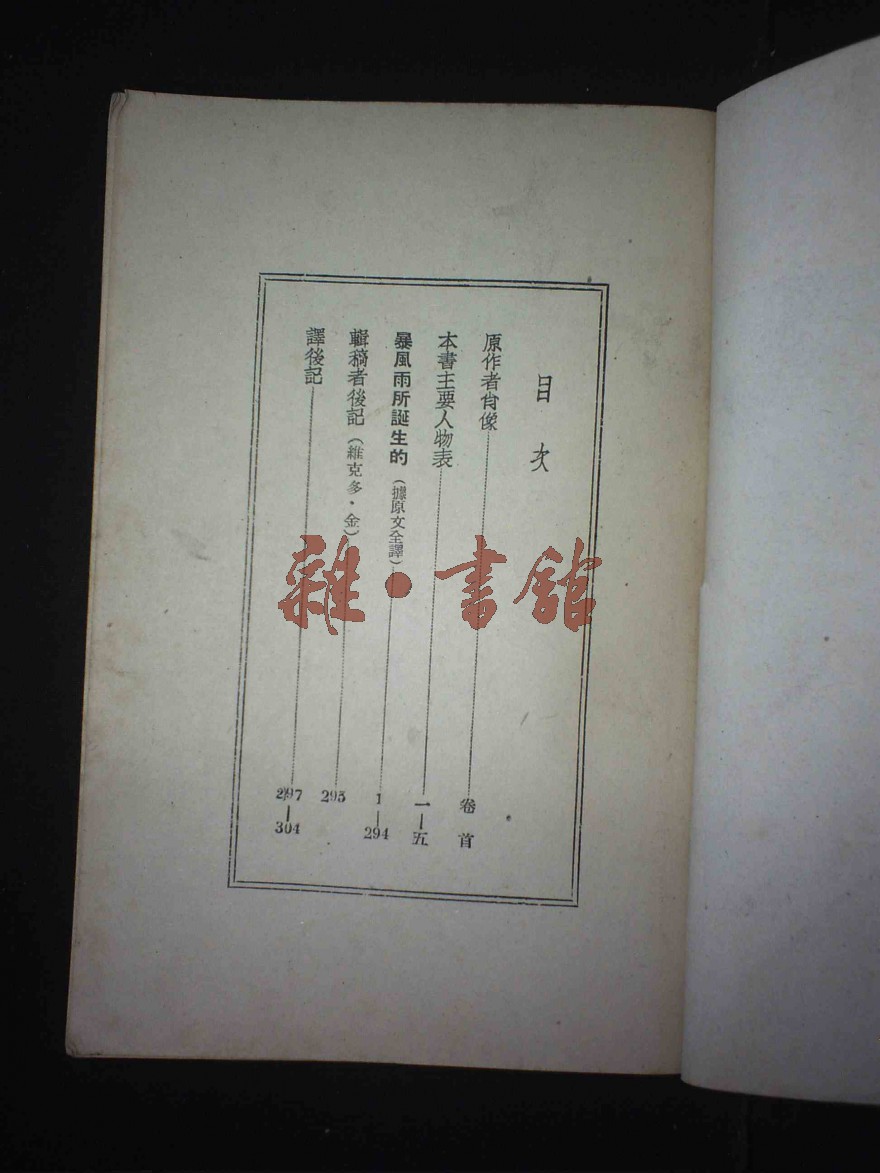 目次
原作者肖像 卷首
本書主要人物表 一—五
暴風雨所誕生的(據原文全譯) 1—294
輯稿者後記(維克多·金) 295
譯後記 297—304
雜·書館